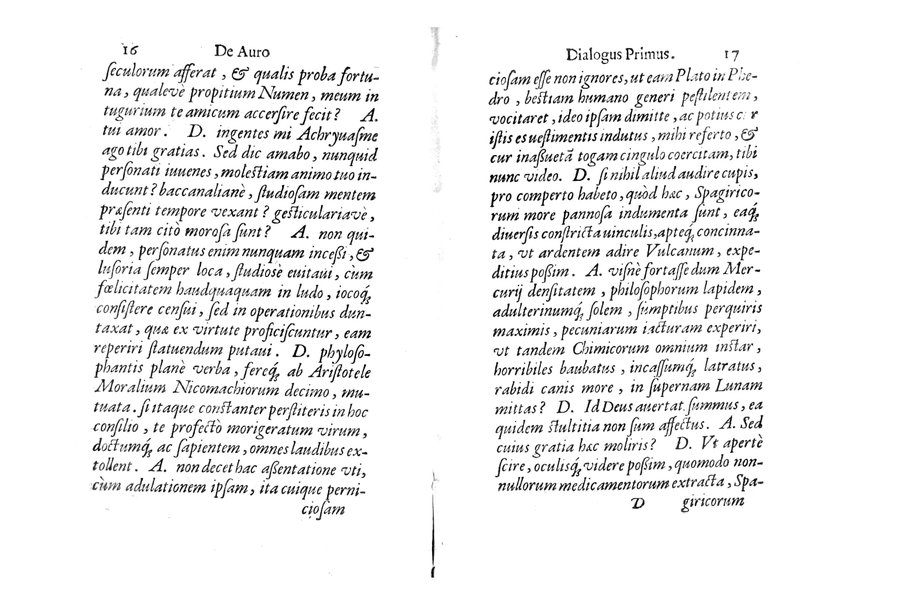 16 De Auro
ſeculorum afferat, & qualis proba fortu-
na, qualevè propitium Numen, meum in
tugurium te amicum accerſire fecit? A.
tui amor. D. ingentes mi Achryuaſme
ago tibi gratias. Sed dic amabo, nunquid
perſonati iuuenes, moleſtiam animo tuo in-
ducunt? baccanalianè, ſtudioſam mentem
præſenti tempore vexant? geſticulariavè,
tibi tam citò moroſa ſunt? A. non qui-
dem, perſonatus enim nunquam inceßi, &
luſoria ſemper loca, ſtudiosè euitaui, cùm
fœlicitatem haudquaquam in ludo, iocoq́;
conſiſtere cenſui, ſed in operationibus dun-
taxat, quæ ex virtute proficiſcuntur, eam
reperiri ſtatuendum putaui. D. phyloſo-
phantis planè verba, fereq́; ab Ariſtotele
Moralium Nicomachiorum decimo, mu-
tuata. ſi itaque conſtanter perſtiteris in hoc
conſilio, te profectò morigeratum virum,
doctumq́; ac ſapientem, omnes laudibus ex-
tollent. A. non decet hac aſſentatione vti,
cùm adulationem ipſam, ita cuique perni-
cioſam
Dialogus Primus. 17
cioſam eſſe non ignores, ut eam Plato in Phe-
dro, beſtiam humano generi peſtilentem,
vocitaret, ideo ipſam dimitte, ac potius cur
iſtis es ueſtimentis indutus, mihi referto, &
cur inaſſuetâ togam cingulo coercitam, tibi
nunc video. D. ſi nihil aliud audire cupis,
pro comperto habeto, quòd hæc, Spagirico-
rum more pannoſa indumenta ſunt, eaq́;
diuerſis conſtricta uinculis, apteq́; concinna-
ta, vt ardentem adire Vulcanum, expe-
ditius poßim. A. viſnè fortaſſe dum Mer-
curij denſitatem, philoſophorum lapidem,
adulterinumq́; ſolem, ſumptibus perquiris
maximis, pecuniarum iacturam experiri,
vt tandem Chimicorum omnium inſtar,
horribiles baubatus, incaſſumq́; latratus,
rabidi canis more, in ſupernam Lunam
mittas? D. Id Deus auertat ſummus, ea
quidem ſtultitia non ſum affectus. A. Sed
cuius gratia hæc moliris? D. Vt apertè
ſcire, oculiſq́; videre poßim, quomodo non-
nullorum medicamentorum extracta, Spa-
D giricorum